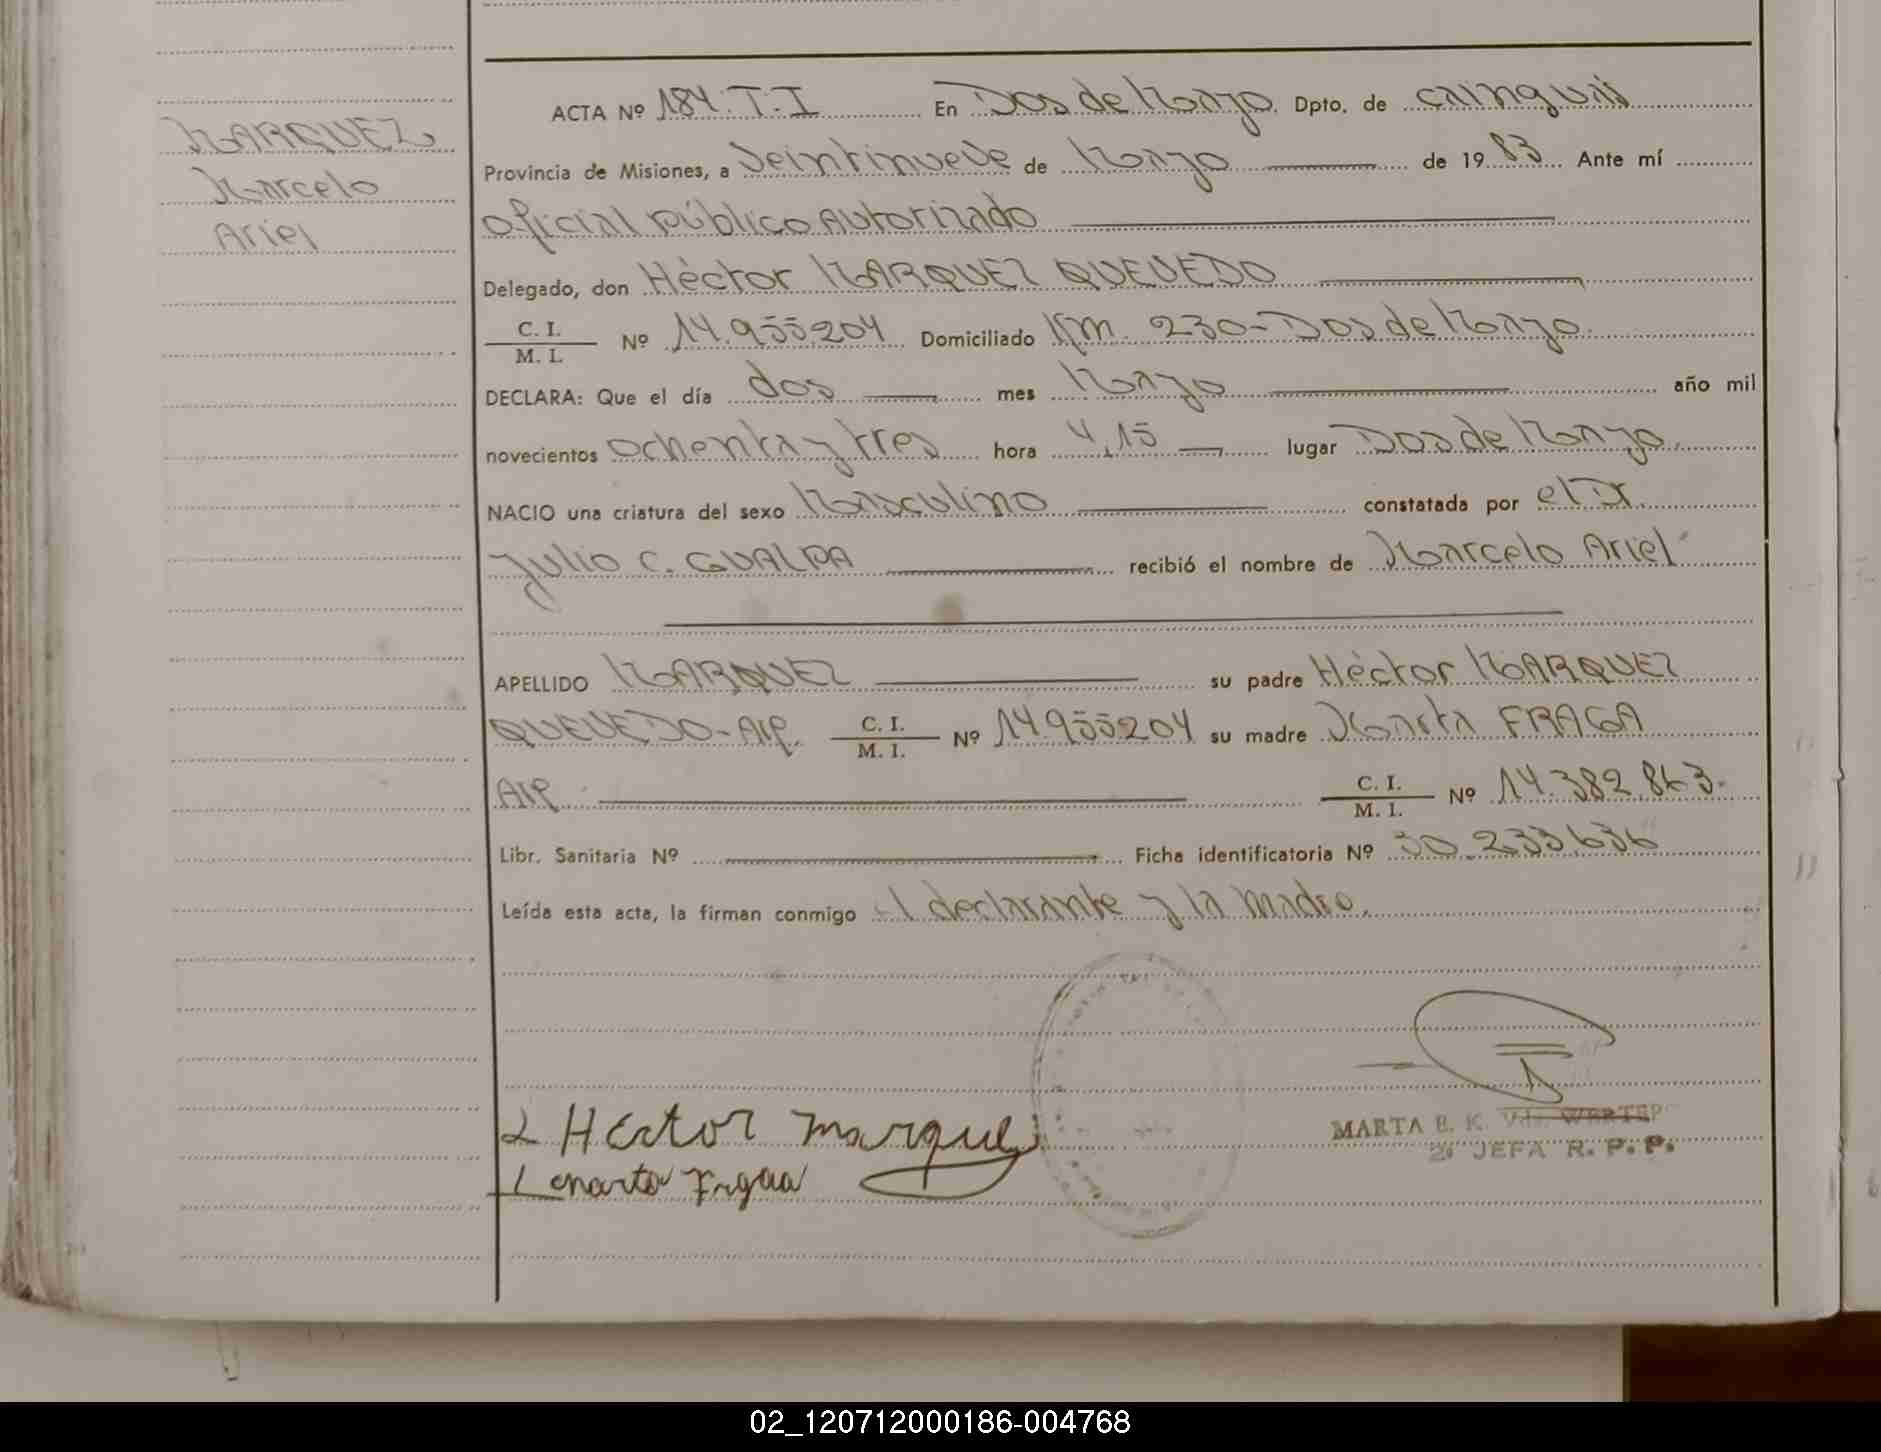 MARQUEZ
Marcelo
Ariel
ACTA Nº 184.T.I En Dos de Mayo. Dpto. de Cainguás
Provincia de Misiones, a Veintinueve de Mayo de 1983 Ante mí
Oficial Público Autorizado
Delegado, don Héctor MARQUEZ QUEVEDO
C. I. / M. I. Nº 14.955.204 Domiciliado Km. 230-Dos de Mayo.
DECLARA: Que el día dos mes Mayo año mil
novecientos ochenta y tres hora 4,15 lugar Dos de Mayo.
NACIO una criatura del sexo Masculino constatada por el Dr.
Julio C. GUALPA recibió el nombre de Marcelo Ariel
APELLIDO MARQUEZ su padre Héctor MARQUEZ
QUEVEDO-Arg. C. I. / M. I. Nº 14.955204 su madre Marta FRAGA
Arg. C. I. / M. I. Nº 14.382.863.
Libr. Sanitaria Nº Ficha identificatoria Nº 30.233.636
Leída esta acta, la firman conmigo el declarante y la madre.
Hector Marque
marta
MARTA E. K. Vda. WERTEP
JEFA R. P. P.
02_120712000186-004768